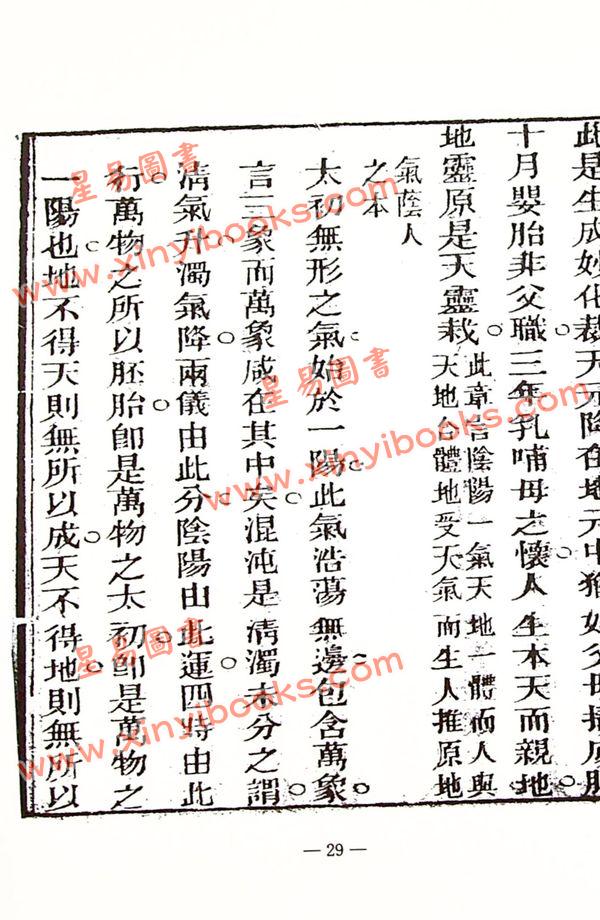 此是生成妙化裁天元降在地元中猶如父母播成胎
十月嬰胎非父職三年乳哺母之懷人生本天而親地
地靈原是天靈栽此章言陰陽一氣天地一體而人與
天地合體地受天氣而生人推原地
氣蔭人
之本
太初無形之氣始於一陽此氣浩蕩無邊包含萬象
言三象而萬象咸在其中矣混沌是清濁未分之謂
清氣升濁氣降兩儀由此分陰陽由此運四時由此
行萬物之所以胚胎卽是萬物之太初卽是萬物之
一陽也地不得天則無所以成天不得地則無所以
— 29 —
星易圖書
www.xinyibooks.com
星易圖書
www.xinyibooks.com
星易圖書
www.xinyibooks.com